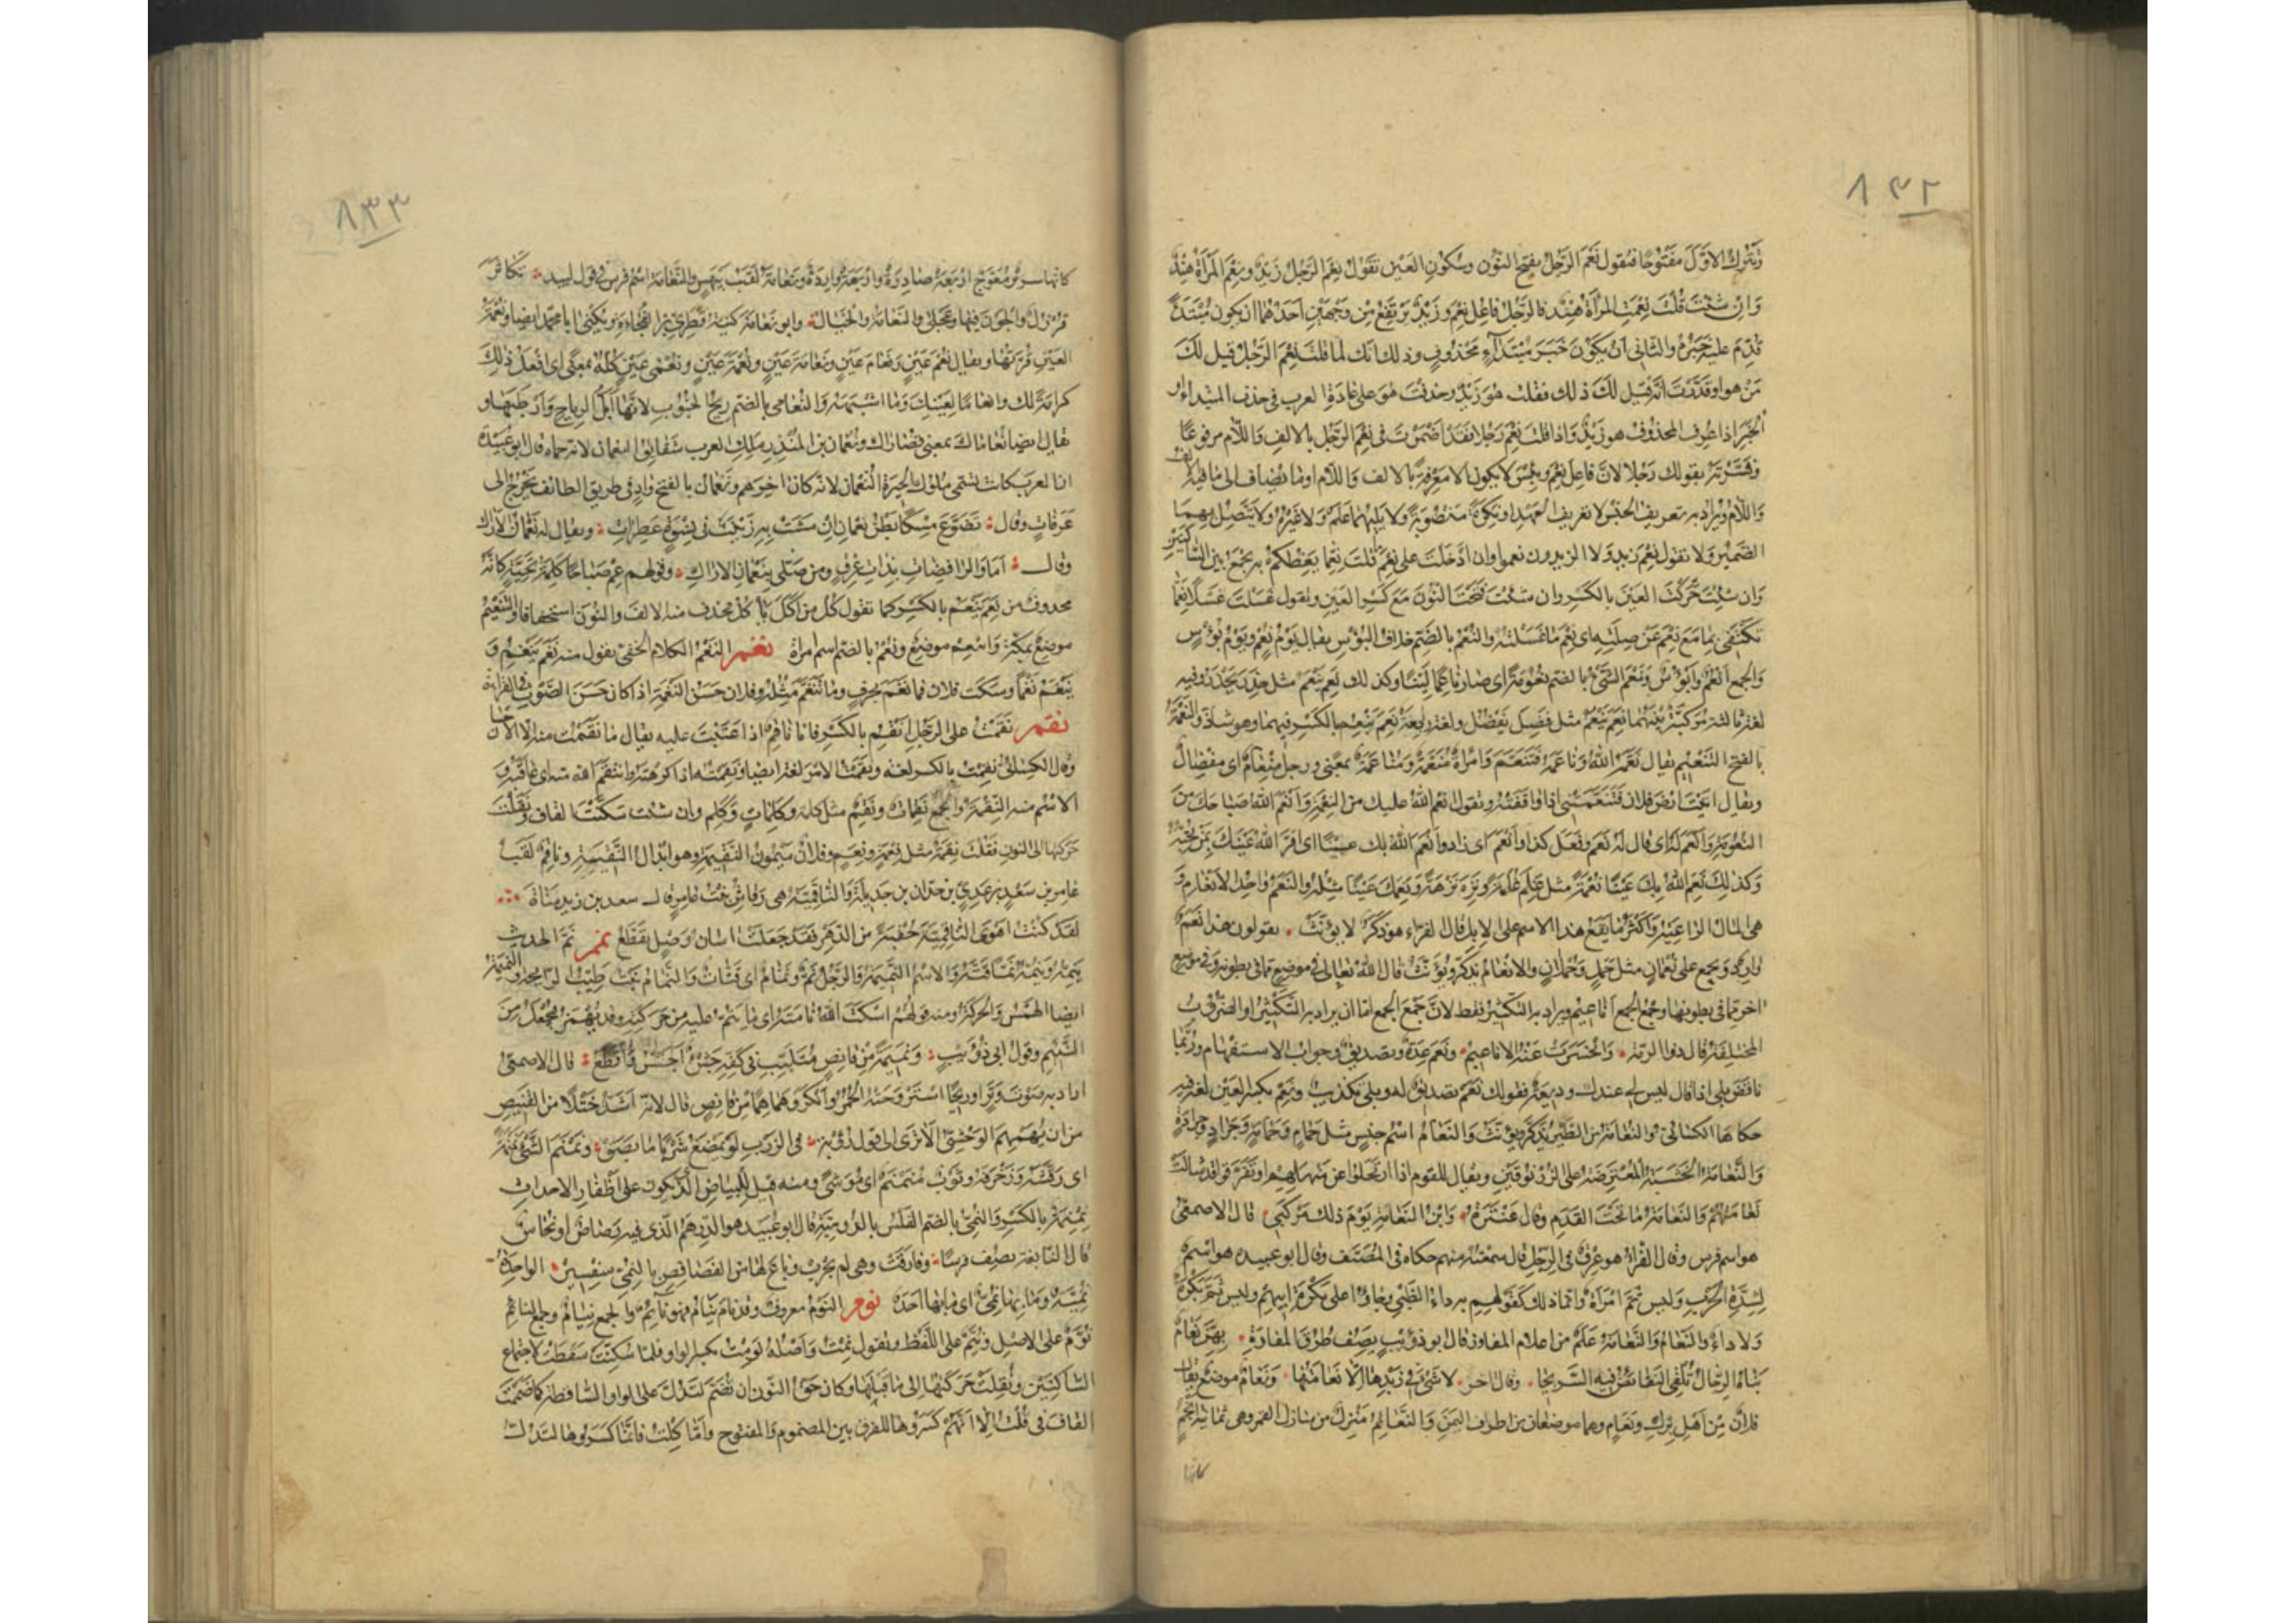 ٨٣٢
وتترك الاول مفتوحا فتقول نعم الرجل بفتح النون وسكون العين تقول نعم الرجل زيد ونعم المرأة هند
وان شئت قلت نعمت المرأة هند فالرجل فاعل نعم وزيد يرتفع من وجهين احدهما ان يكون مبتدأ
قدم عليه خبره والثاني ان يكون خبر مبتدأ محذوف وذلك انك لما قلت نعم الرجل قيل لك
من هو او قدرت انه قيل لك ذلك فقلت هو زيد وحذفت هو على عادة العرب في حذف المبتدا او
الخبر اذا عرف المحذوف هو زيد واذا قلت نعم رجلا فقد اضمرت في نعم الرجل بالالف واللام مرفوعا
وفسرته بقولك رجلا لان فاعل نعم وبئس لا يكون الا معرفة بالالف واللام او ما يضاف الى ما فيه الالف
واللام ويراد به تعريف الجنس لا تعريف العهد او نكرة منصوبة ولا يليهما علم ولا غيره ولا يتصل بهما
الضمير ولا تقول نعم زيد ولا الزيدون نعموا وان ادخلت على نعم قلت نعما يعظكم به يجمع بين الساكنين
وان شئت حركت العين بالكسر وان شئت فتحت النون مع كسر العين وتقول غسلت غسلا نعما
تكتفي بما مع نعم عن صلته اى نعم ما غسلته والنعم بالضم خلاف البؤس يقال يوم نعم ويوم بؤس
والجمع انعم وابؤس ونعم الشئ بالضم نعومة اى صار ناعما لينا وكذلك نعم ينعم مثل حذر يحذر وفيه
لغة ثالثة مركبة بينهما نعم ينعم مثل فضل يفضل ولغة رابعة نعم ينعم بالكسر فيهما وهو شاذ والنعمة
بالفتح التنعيم يقال نعمه الله وناعمه فتنعم وامرأة منعمة ومناعمة بمعنى ورجل منعام اى مفضال
ويقال اتيت ارض فلان فتنعمتني اذا وافقته وتقول انعم الله عليك من النعمة وانعم الله صباحك من
النعومة وانعم له اى قال له نعم وفعل كذا وانعم اى زاد وانعم الله بك عينا اى اقر الله عينك بمن تحبه
وكذلك نعم الله بك عينا نعمة مثل غلم غلمة ونزه نزهة ونعمك عينا مثله والنعم واحد الانعام و
هى المال الراعية واكثر ما يقع هذا الاسم على الابل قال الفراء هو ذكر لا يؤنث يقولون هذا نعم
وارد ويجمع على نعمان مثل حمل وحملان والانعام يذكر ويؤنث قال الله تعالى في موضع مما في بطونه وفي موضع
اخر مما في بطونها وجمع الجمع اناعيم ويراد به التكثير فقط لان جمع الجمع اما ان يراد به التكثير او الضروب
المختلفة قال ذو الرمة وانحسرت عنه الاناعيم ونعم عدة وتصديق وجواب الاستفهام وربما
ناقض بلى اذا قال ليس لى عندك وديعة فقولك نعم تصديق له وبلى تكذيب ونعم بكسر العين لغة فيه
حكاها الكسائي والنعامة من الطير يذكر ويؤنث والنعام اسم جنس مثل حمام وحمامة وجراد وجرادة
والنعامة الخشبة المعترضة على الزرنوقين ويقال للقوم اذا ارتحلوا عن منهلهم او تفرقوا قد شالت
نعامتهم والنعامة ما تحت القدم وقال عنترة وابن النعامة يوم ذلك مركبي قال الاصمعى
هو اسم فرس وقال الفراء هو عرق في الرجل قال سمعته منهم حكاه في المصنف وقال ابو عبيدة هو اسم
لشدة الحرب وليس ثم امرأة وانما ذلك كقولهم به داء الظبي وجاؤا على بكرة ابيهم وليس ثم بكرة
ولا داء والنعام والنعامة علم من اعلام المفاوز قال ابو ذؤيب يصف طرق المفازة بهن نعام
بناه الرجال تلقى النفائض فيه السريحا وقال اخر لا شئ في ريدها الا نعامتها ونعام موضع يقال
فلان من اهل برك ونعام وهما موضعان من اطراف اليمن والنعائم منزل من منازل القمر وهى ثمانية انجم
كانها
٨٣٣
كانها سرير معوج اربعة صادرة واربعة واردة ونعامة لقب بيهس والنعامة اسم فرس في قول لبيد تكاثر
قرزل والجون فيها وعجلى والنعامة والخيال وابو نعامة كنية قطري بن الفجاءة ويكنى ابا محمد ايضا ونعمة
العين قرتها ويقال نعم عين ونعام عين ونعامة عين ونعمة عين ونعمى عين كله بمعنى اى افعل ذلك
كرامة لك وانعاما لعينك وما اشبهه والنعامى بالضم ريح الجنوب لانها ابل الرياح وارطبها و
يقال ايضا نعاماك بمعنى قصاراك ونعمان بن المنذر ملك العرب شقائق النعمان لانه حماه قال ابو عبيدة
ان العرب كانت تسمى ملوك الحيرة النعمان لانه كان اخرهم ونعمان بالفتح واد في طريق الطائف يخرج الى
عرفات وقال تضوع مسكا بطن نعمان ان مشت به زينب في نسوة عطرات ويقال له نعمان الاراك
وقال اما والراقصات بذات عرق ومن صلى بنعمان الاراك وقولهم عم صباحا كلمة تحية كانه
محذوف من نعم ينعم بالكسر كما تقول كل من اكل ياكل تحذف منه الالف والنون استخفافا والتنعيم
موضع بمكة وانعم موضع ونعم بالضم اسم امراة نغم النغم الكلام الخفى تقول منه نغم ينغم و
ينغم نغما وسكت فلان فما نغم بحرف وما تنغم مثله وفلان حسن النغمة اذا كان حسن الصوت في القراءة
نقم نقمت على الرجل انقم بالكسر فانا ناقم اذا عتبت عليه يقال ما نقمت منه الا الاحسان
وقال الكسائي نقمت بالكسر لغة ونقمت الامر لغة ايضا ونقمته اذا كرهته وانتقم الله منه اى عاقبه و
الاسم منه النقمة والجمع نقمات ونقم مثل كلمة وكلمات وكلم وان شئت سكنت القاف ونقلت
حركتها الى النون فقلت نقمة مثل نعمة ونعم وفلان ميمون النقيمة وهو ابدال النقيبة وناقم لقب
عامر بن سعد بن عدي بن جدان بن جديلة والناقمية هى رقاش بنت عامر قال سعد بن زيد مناة
لقد كنت اهوى الناقمية حقبة من الدهر فقد جعلت اسان وصل تقطع نمم نم الحديث
ينمه وينمه نما قته والاسم النميمة والرجل نم ونمام اى قتات والنمام نبت طيب الرائحة والنميمة
ايضا الهمس والحركة ومنه قولهم اسكت الله نامته اى ما ينم عليه من حركته وقد يهمز فيجعل من
النئيم وقول ابي ذؤيب ونميمة من قانص متلبب في كفه جشء اجش واقطع قال الاصمعى
اراد به صوت وتر او ريحا استروحته الحمر وانكر وهماهما من قانص قال لانه اشد ختلا من القنيص
من ان يهمهم الوحش الا ترى الى قول رؤبة في الزرب لو يمضغ شريا ما بصق ونمنم الشئ نمنمة
اى رقشه وزخرفه وثوب منمنم اى موشى ومنه قيل للبياض الذي يكون على اظفار الاحداث
نمنمة بالكسر والنمي بالضم الفلس بالرومية قال ابو عبيد هو الدرهم الذي فيه رصاص او نحاس
قال النابغة يصف فرسا وقارفت وهى لم تجرب وباع لها من الفصافص بالنمي سفسير الواحدة
نمية وما بها نمي اى ما بها احد نوم النوم معروف وقد نام ينام فهو نائم والجمع نيام وجمع النائم
نوم على الاصل ونيم على اللفظ وتقول نمت واصله نومت بكسر الواو فلما سكنت سقطت لاجتماع
الساكنين ونقلت حركتها الى ما قبلها وكان حق النون ان تضم لتدل على الواو الساقطة كما ضممت
القاف في قلت الا انهم كسروها للفرق بين المضموم والمفتوح واما كلت فانما كسروها لتدل